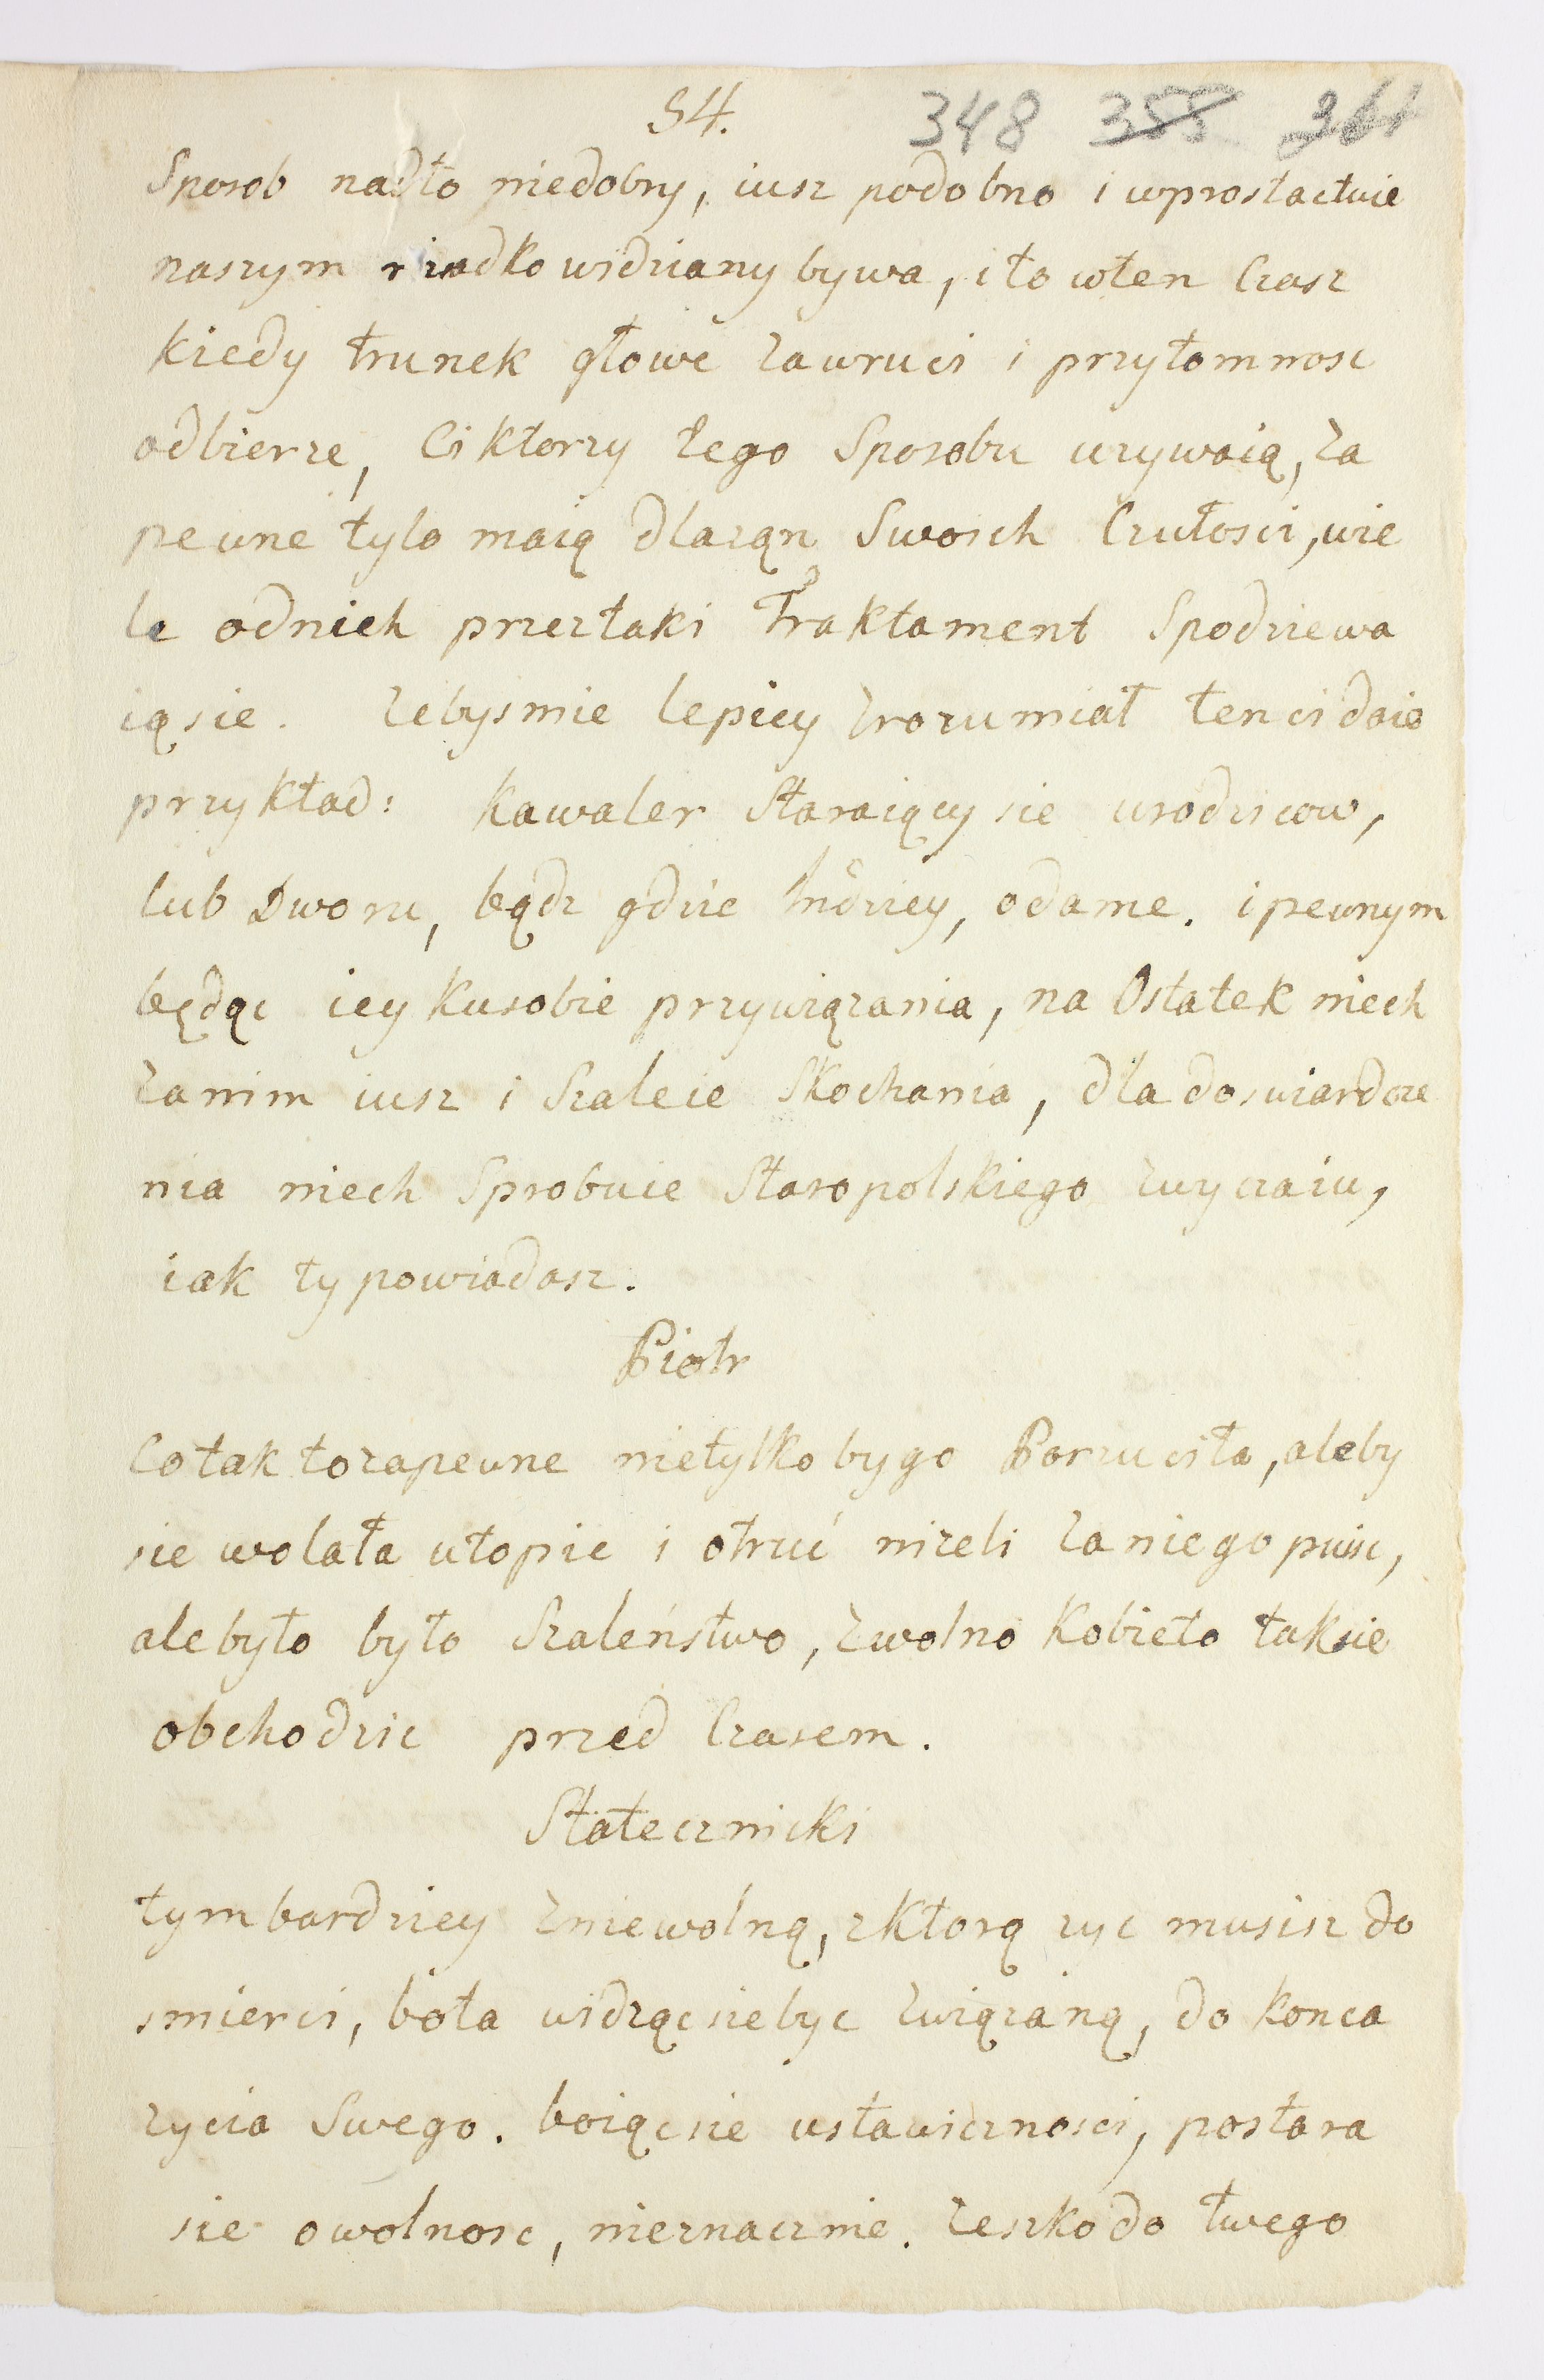 54. 348 355 361
Sposob nadto niedobry, iusz podobno i wprostactwie
naszym rzadko widziany bywa, i to wten Czasz
kiedy trunek głowe zawruci i przytomnosc
odbierze, Ci ktorzy tego Sposobu uzywaią, za
pewne tylo maią dlaząn Swoich Czułosci, wie
le odnich przeztaki Traktament Spodziewa
iąsie. Zebysmie lepiey zrozumiał ten ci daie
przykład: Kawaler Staraiący sie urodzicow,
lub Dworu, bądz gdzie Indziey, odame. i pewnym
będąc iey kusobie przywiązania, na Ostatek niech
zanim iusz i Szaleie Skochania, dla doswiardcze
nia niech Sprobuie Staropolskiego zwyczaiu,
iak ty powiadasz.
Piotr
Cotak tozapewne nietylko bygo Porzuciła, aleby
sie wolała utopic i otruć nizeli zaniego puisc,
alebyto było Szaleństwo, zwolno Kobieto taksie
obchodzic przed Czasem.
Statecznicki
tymbardziey zniewolną, zktorą zyc musisz do
smierci, bota widząc siebyc związaną, do konca
zycia Swego. boiąc sie ustawicznosci, postara
sie owolnosc, nieznacznie. zeszkodo twego